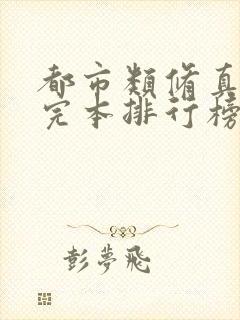 都市類脩真
完本排行榜
彭夢飛